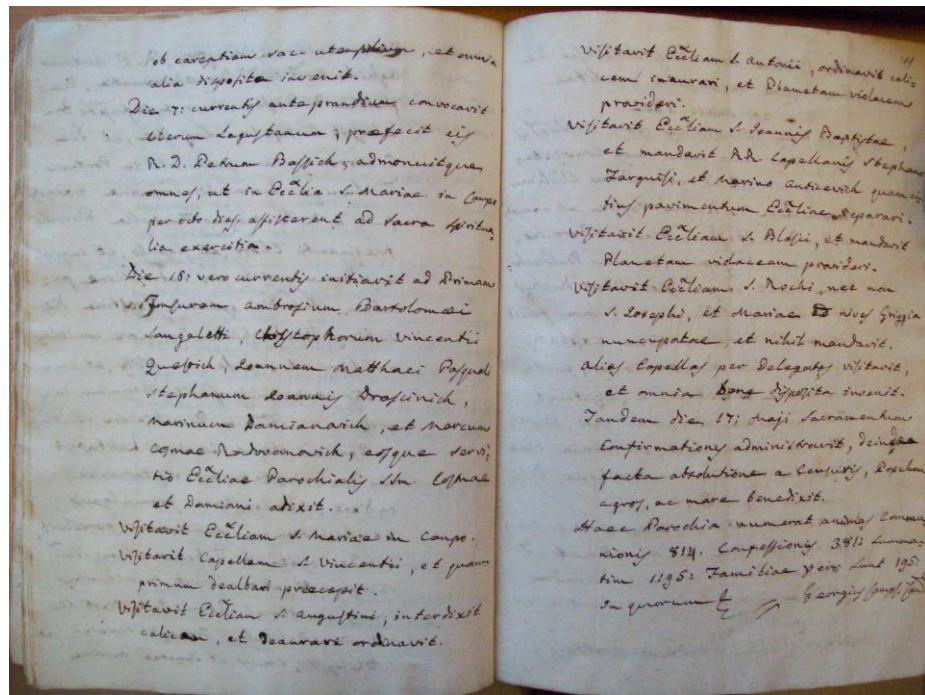 ob carentiam sac: utensilium, et omnia
alia disposita invenit.
Die 7: currentis ante prandium convocavit
Clerum Lagustanum, præfecit eis
R. D. Petrum Bassich, admonuitque
omnes, ut in Ecc̃lia S. Mariae in Campo
per octo dies assisterent ad sacra spiritua-
lia exercitia.
Die 18: vero currentis initiavit ad Primam
Tonsuram Ambrosium Bartolomæi
Sangaletti, Christophorum Vincentii
Quessich, Joannem Matthaei Pasquali
Stephanum Joannis Droscinich,
Marinum Damianovich, et Marcum
Cosmae Radvoanovich, eosque servi-
tio Ecc̃liae Parochialis SSm. Cosmae
et Damiani adixit.
Visitavit Ecc̃liam S. Mariae in Campo.
Visitavit Capellam S. Vincentii, et quam
primum dealbari præcepit.
Visitavit Ecc̃liam S. Augustini, interdixit
calicem, et deaurari ordinavit.
Visitavit Ecc̃liam S. Antonii, ordinavit cali-
cem inaurari, et Planetam violaceam
provideri.
Visitavit Ecc̃liam S. Joannis Baptistae,
et mandavit RR. Capellanis Stephano
Farguisi, et Marino Anticevich quam ci-
tius pavimentum Ecc̃liae separari.
Visitavit Ecc̃liam S. Blasii, et mandavit
Planetam violaceam provideri.
Visitavit Ecc̃liam S. Rochi, nec non
S. Josephi, et Mariae nives Grizgia
nuncupatae, et nihil mandavit.
Alias Capellas per delegatos visitavit,
et omnia bene disposita invenit.
Tandem die 17: Maji Sacramentum
Confirmationis administravit, deinde
facta absolutione a Censuris,
agros, ac mare benedixit.
Haec Parochia numerat animas Commu-
nionis 814. Confessionis 381: Summa-
tim 1195: Familiae vero sunt 195:
In quorum Georgius